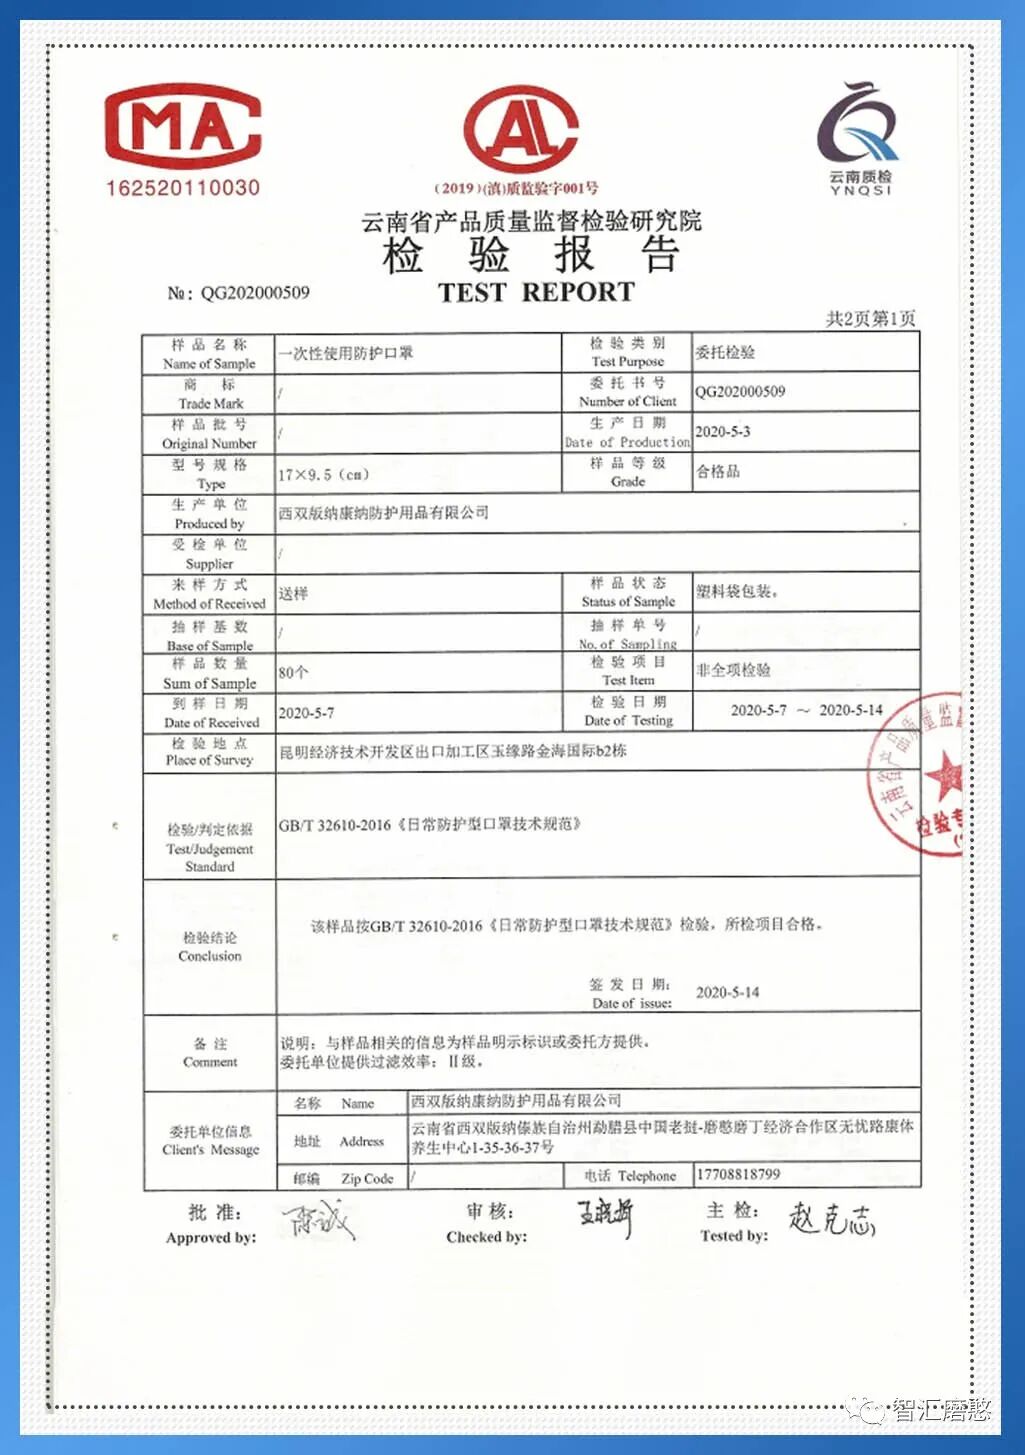 MA
162520110030
AL
(2019)(滇)质监验字001号
云南质检
YNQSI
云南省产品质量监督检验研究院
检 验 报 告
TEST REPORT
№: QG202000509
共2页第1页
样品名称 Name of Sample
一次性使用防护口罩
检验类别 Test Purpose
委托检验
商标 Trade Mark
/
委托书号 Number of Client
QG202000509
样品批号 Original Number
/
生产日期 Date of Production
2020-5-3
型号规格 Type
17×9.5（cm）
样品等级 Grade
合格品
生产单位 Produced by
西双版纳康纳防护用品有限公司
受检单位 Supplier
/
来样方式 Method of Received
送样
样品状态 Status of Sample
塑料袋包装。
抽样基数 Base of Sample
/
抽样单号 No. of Sampling
/
样品数量 Sum of Sample
80个
检验项目 Test Item
非全项检验
到样日期 Date of Received
2020-5-7
检验日期 Date of Testing
2020-5-7 ～ 2020-5-14
检验地点 Place of Survey
昆明经济技术开发区出口加工区玉缘路金海国际b2栋
检验/判定依据
Test/Judgement
Standard
GB/T 32610-2016《日常防护型口罩技术规范》
检验结论
Conclusion
该样品按GB/T 32610-2016《日常防护型口罩技术规范》检验，所检项目合格。
签发日期:
Date of issue:
2020-5-14
云南省产品质量监
检验专
备注
Comment
说明：与样品相关的信息为样品明示标识或委托方提供。
委托单位提供过滤效率：Ⅱ级。
委托单位信息
Client's Message
名称 Name
西双版纳康纳防护用品有限公司
地址 Address
云南省西双版纳傣族自治州勐腊县中国老挝-磨憨磨丁经济合作区无忧路康体
养生中心1-35-36-37号
邮编 Zip Code
/
电话 Telephone
17708818799
批准:
Approved by:
审核:
Checked by:
主检:
Tested by:
赵克志
智汇磨憨